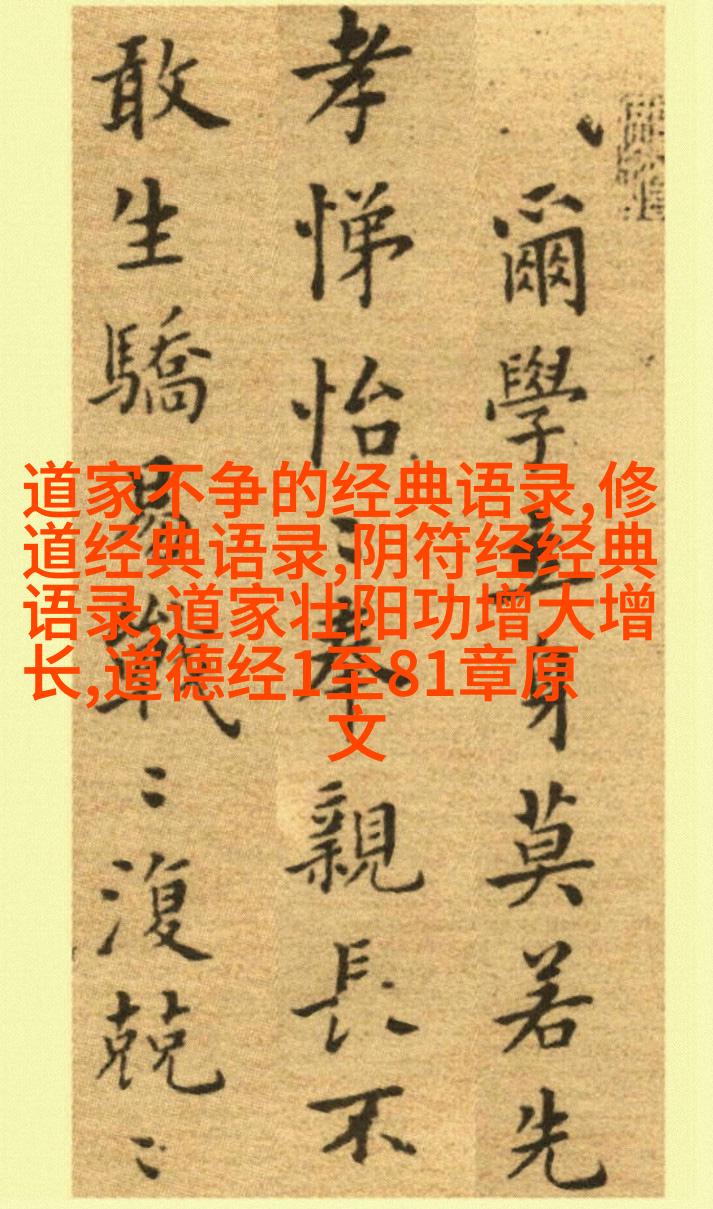 爾學立身莫若先
孝悌怡〻奉親長不
敢生驕易戰〻復兢〻
道家不争的经典语录,修
道经典语录,阴符经经典
语录,道家壮阳功增大增
长,道德经1至81章原
文